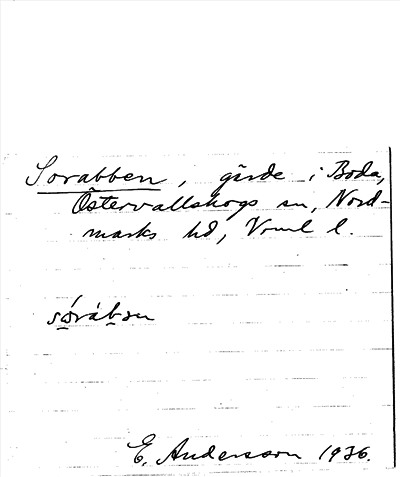 Sorabben, gärde i Boda,
Östervallskogs sn, Nord-
marks hd, Vrml l.
E. Andersson 1936.